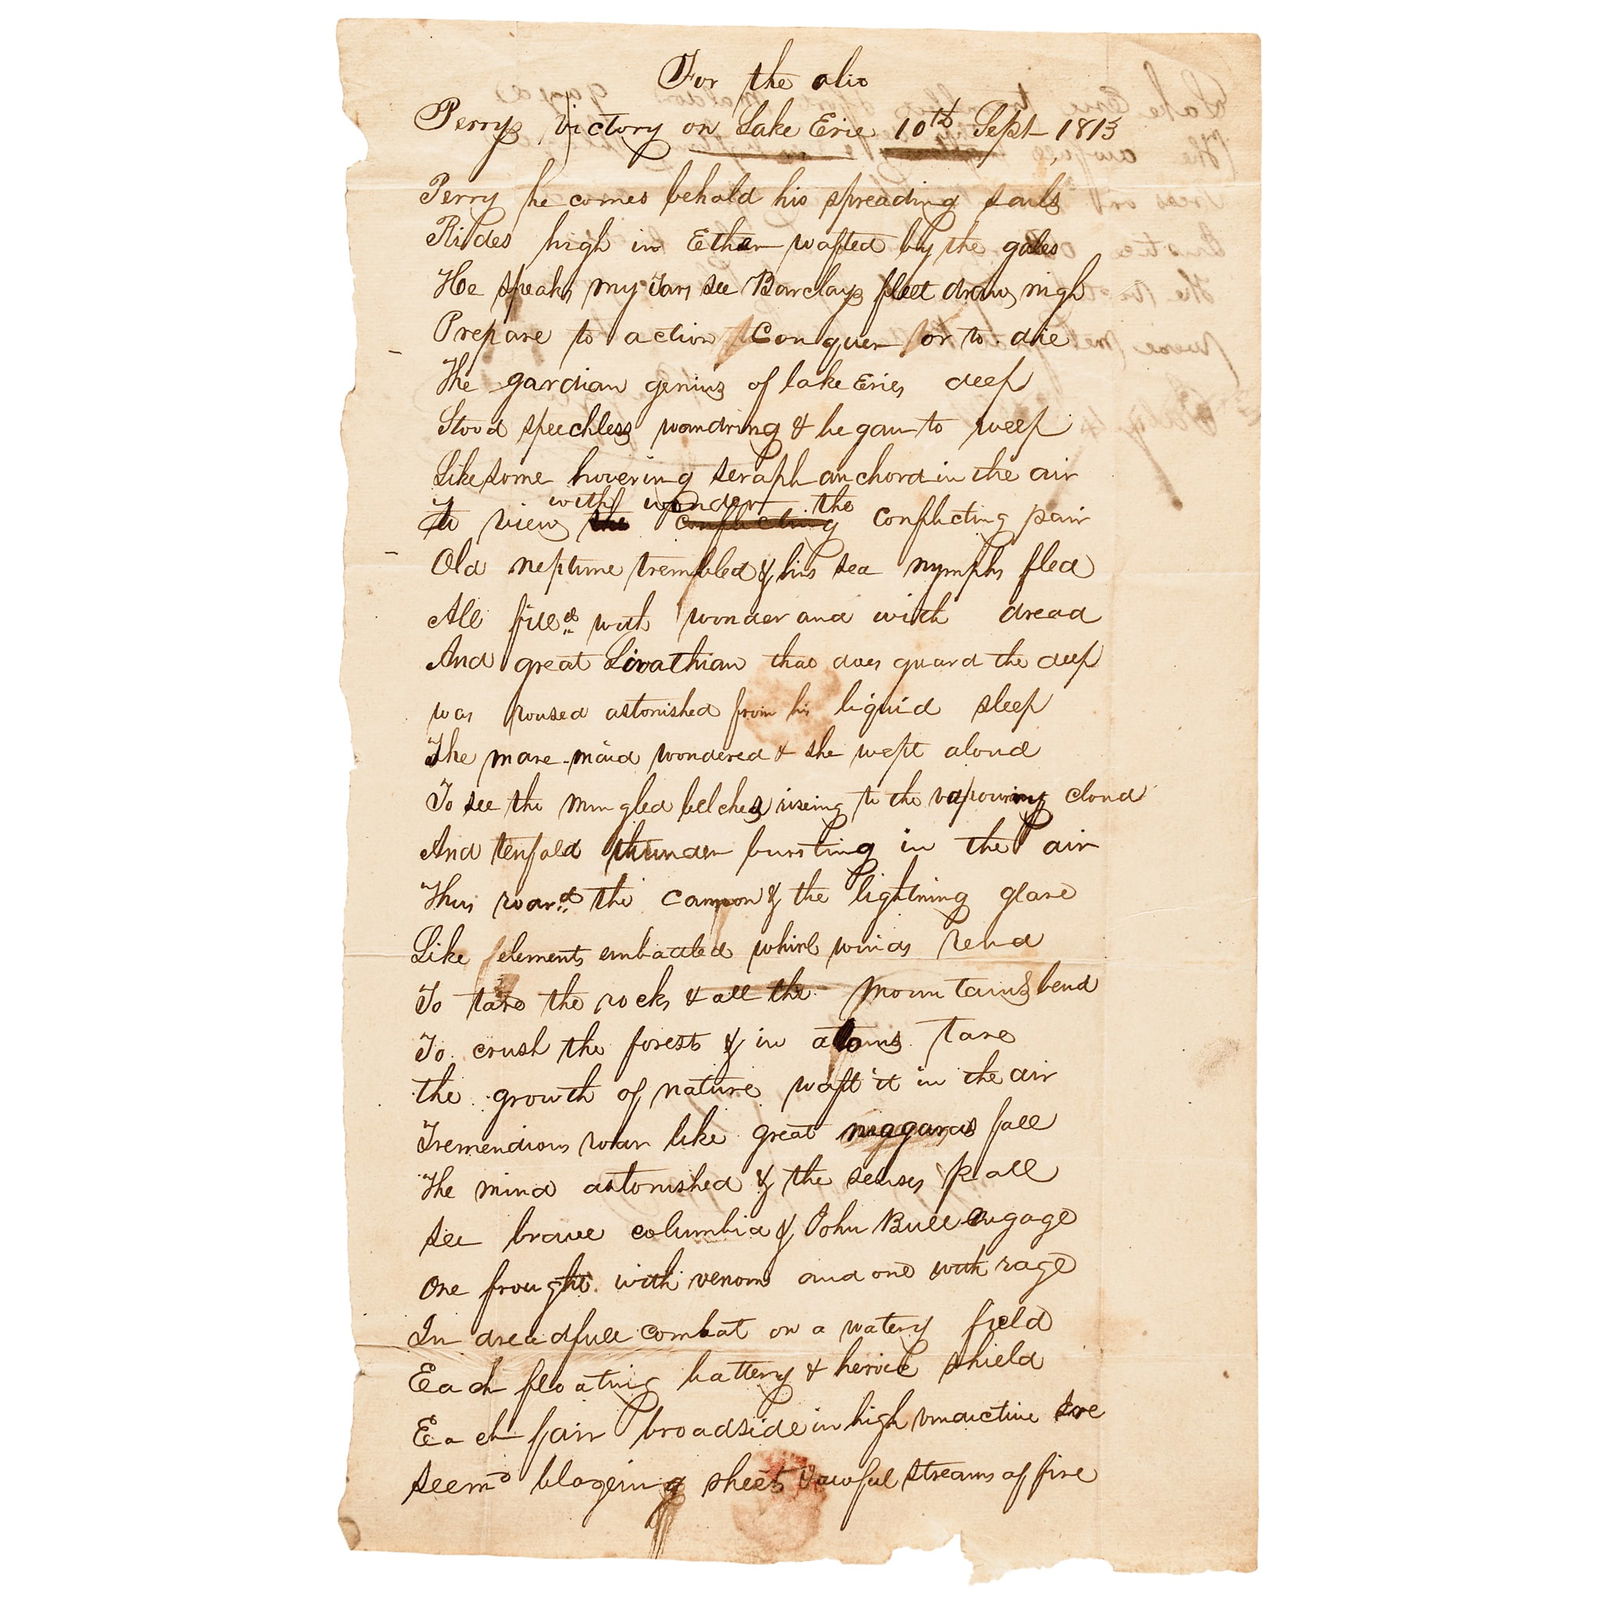 For the olio
Perrys victory on Lake Erie 10th Sept 1813
Perry he comes behold his spreading sails
Rides high in Ether wafted by the gales
He speaks my Tars see Barclays fleet draws nigh
Prepare to action Conquer or to die
The gardian genius of lake Eries deep
Stood speechless wondring & began to weep
Like some hovering seraph anchord in the air
with wonder the
To view the conflicting conflicting pair
Old neptune trembled & his sea nymphs fled
All filld with wonder and with dread
And great Livathian that does guard the deep
was roused astonished from his liquid sleep
The mare-maid wondered & she wept aloud
To see the mingled belches riseing to the vapouring cloud
And tenfold thunder bursting in the air
Thus roard the cannon & the lightning glare
Like elements embattled whirl winds rend
To tare the rocks & all the Mountains bend
To crush the forests & in atoms tare
the growth of nature waft it in the air
Tremendious roar like great niagaras fall
The mind astonished & the senses pall
see brave columbia & John Bull engage
One frought with venom and one with rage
In dreadfull combat on a watery field
Each floating battery & heroick shield
Each fair broadside in high vindictive
seemd blazeing sheets & awful streams of fire